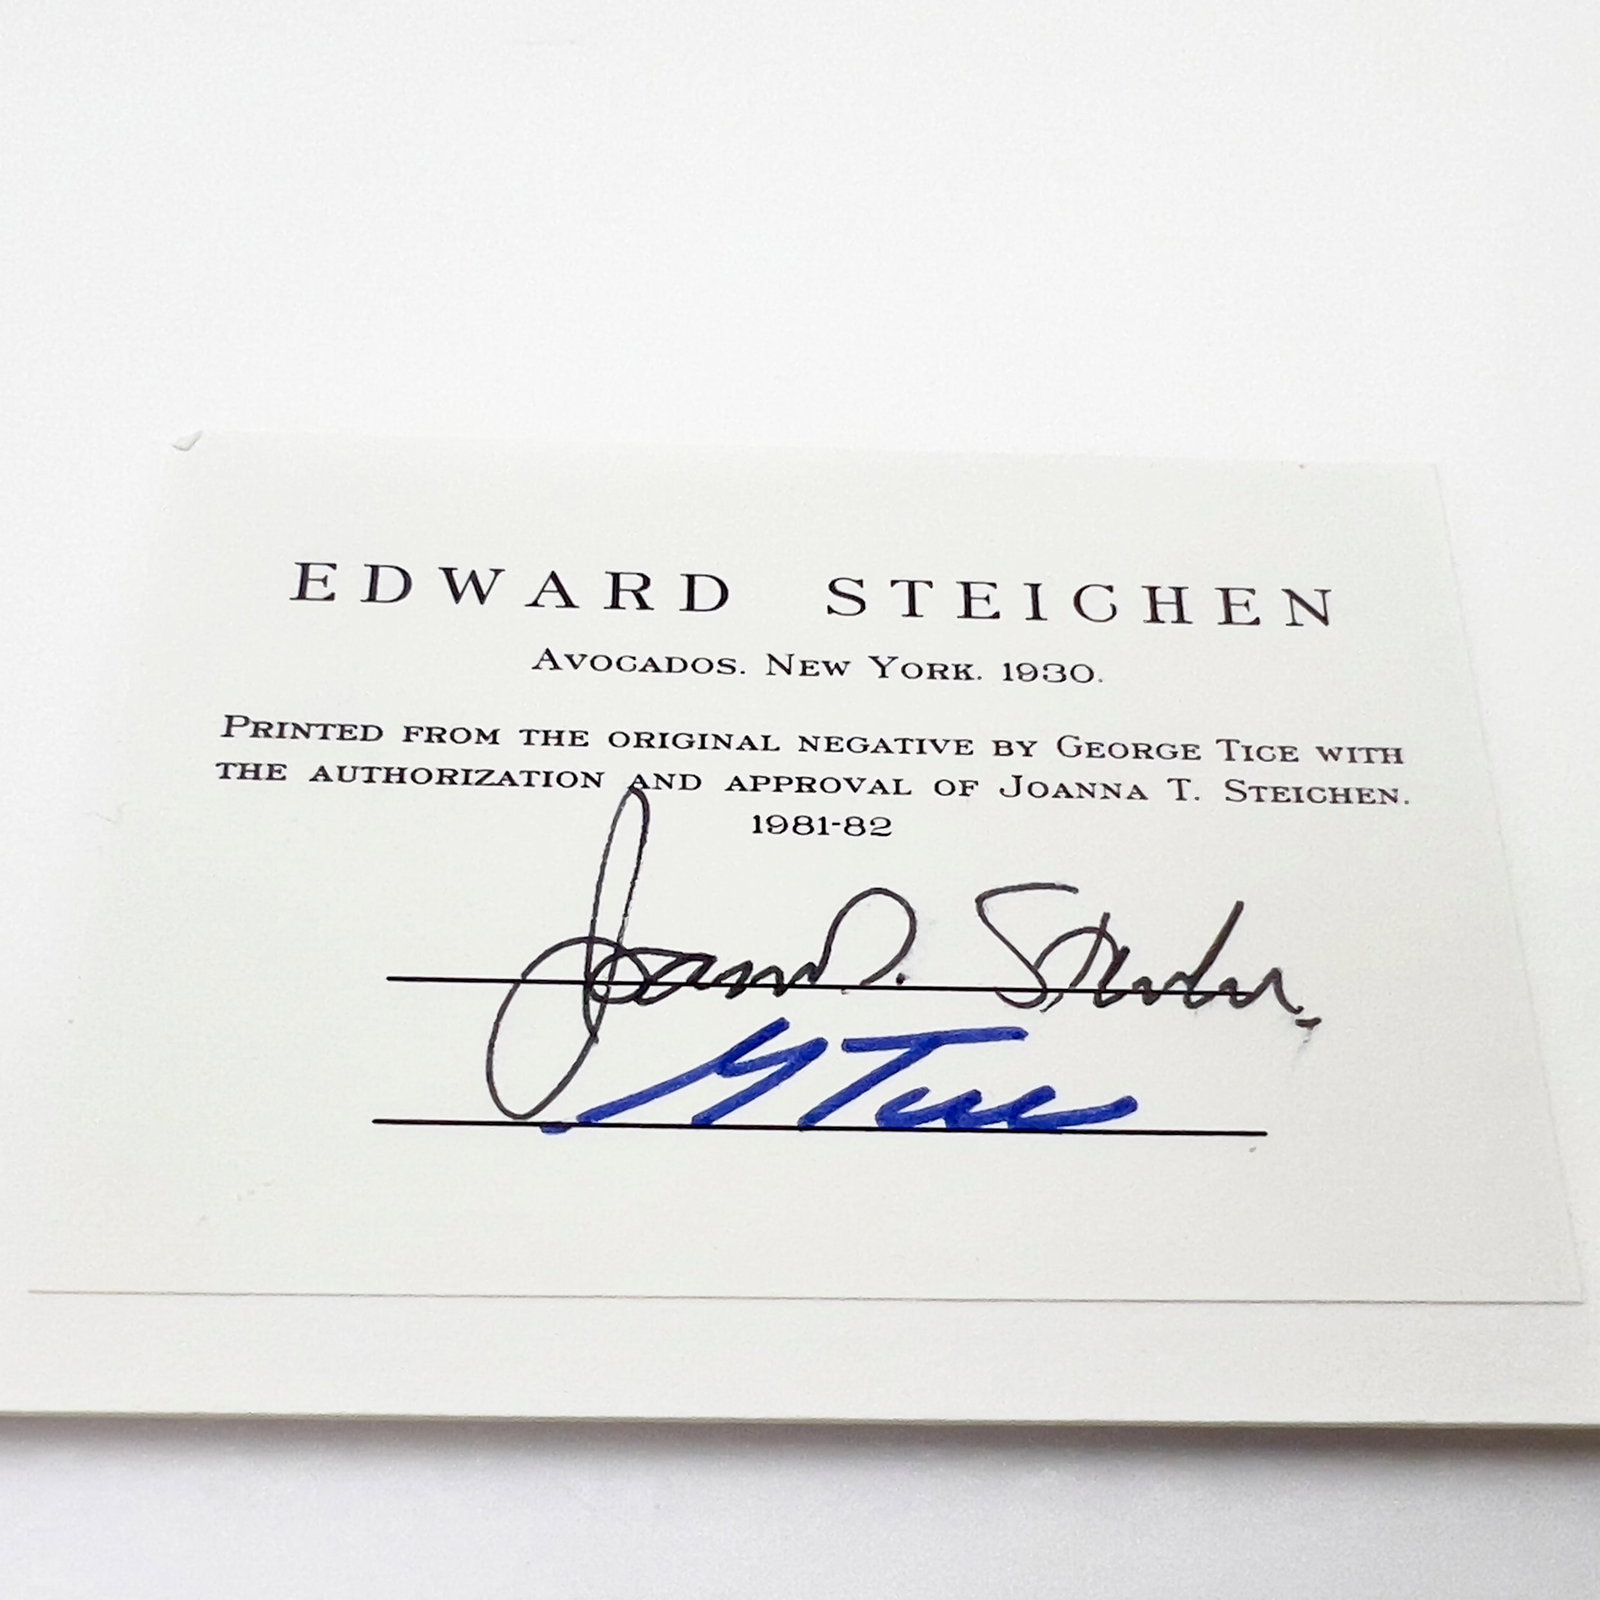 EDWARD STEICHEN
AVOCADOS. NEW YORK. 1930.
PRINTED FROM THE ORIGINAL NEGATIVE BY GEORGE TICE WITH
THE AUTHORIZATION AND APPROVAL OF JOANNA T. STEICHEN.
1981-82
Joanna T. Steichen
G Tice